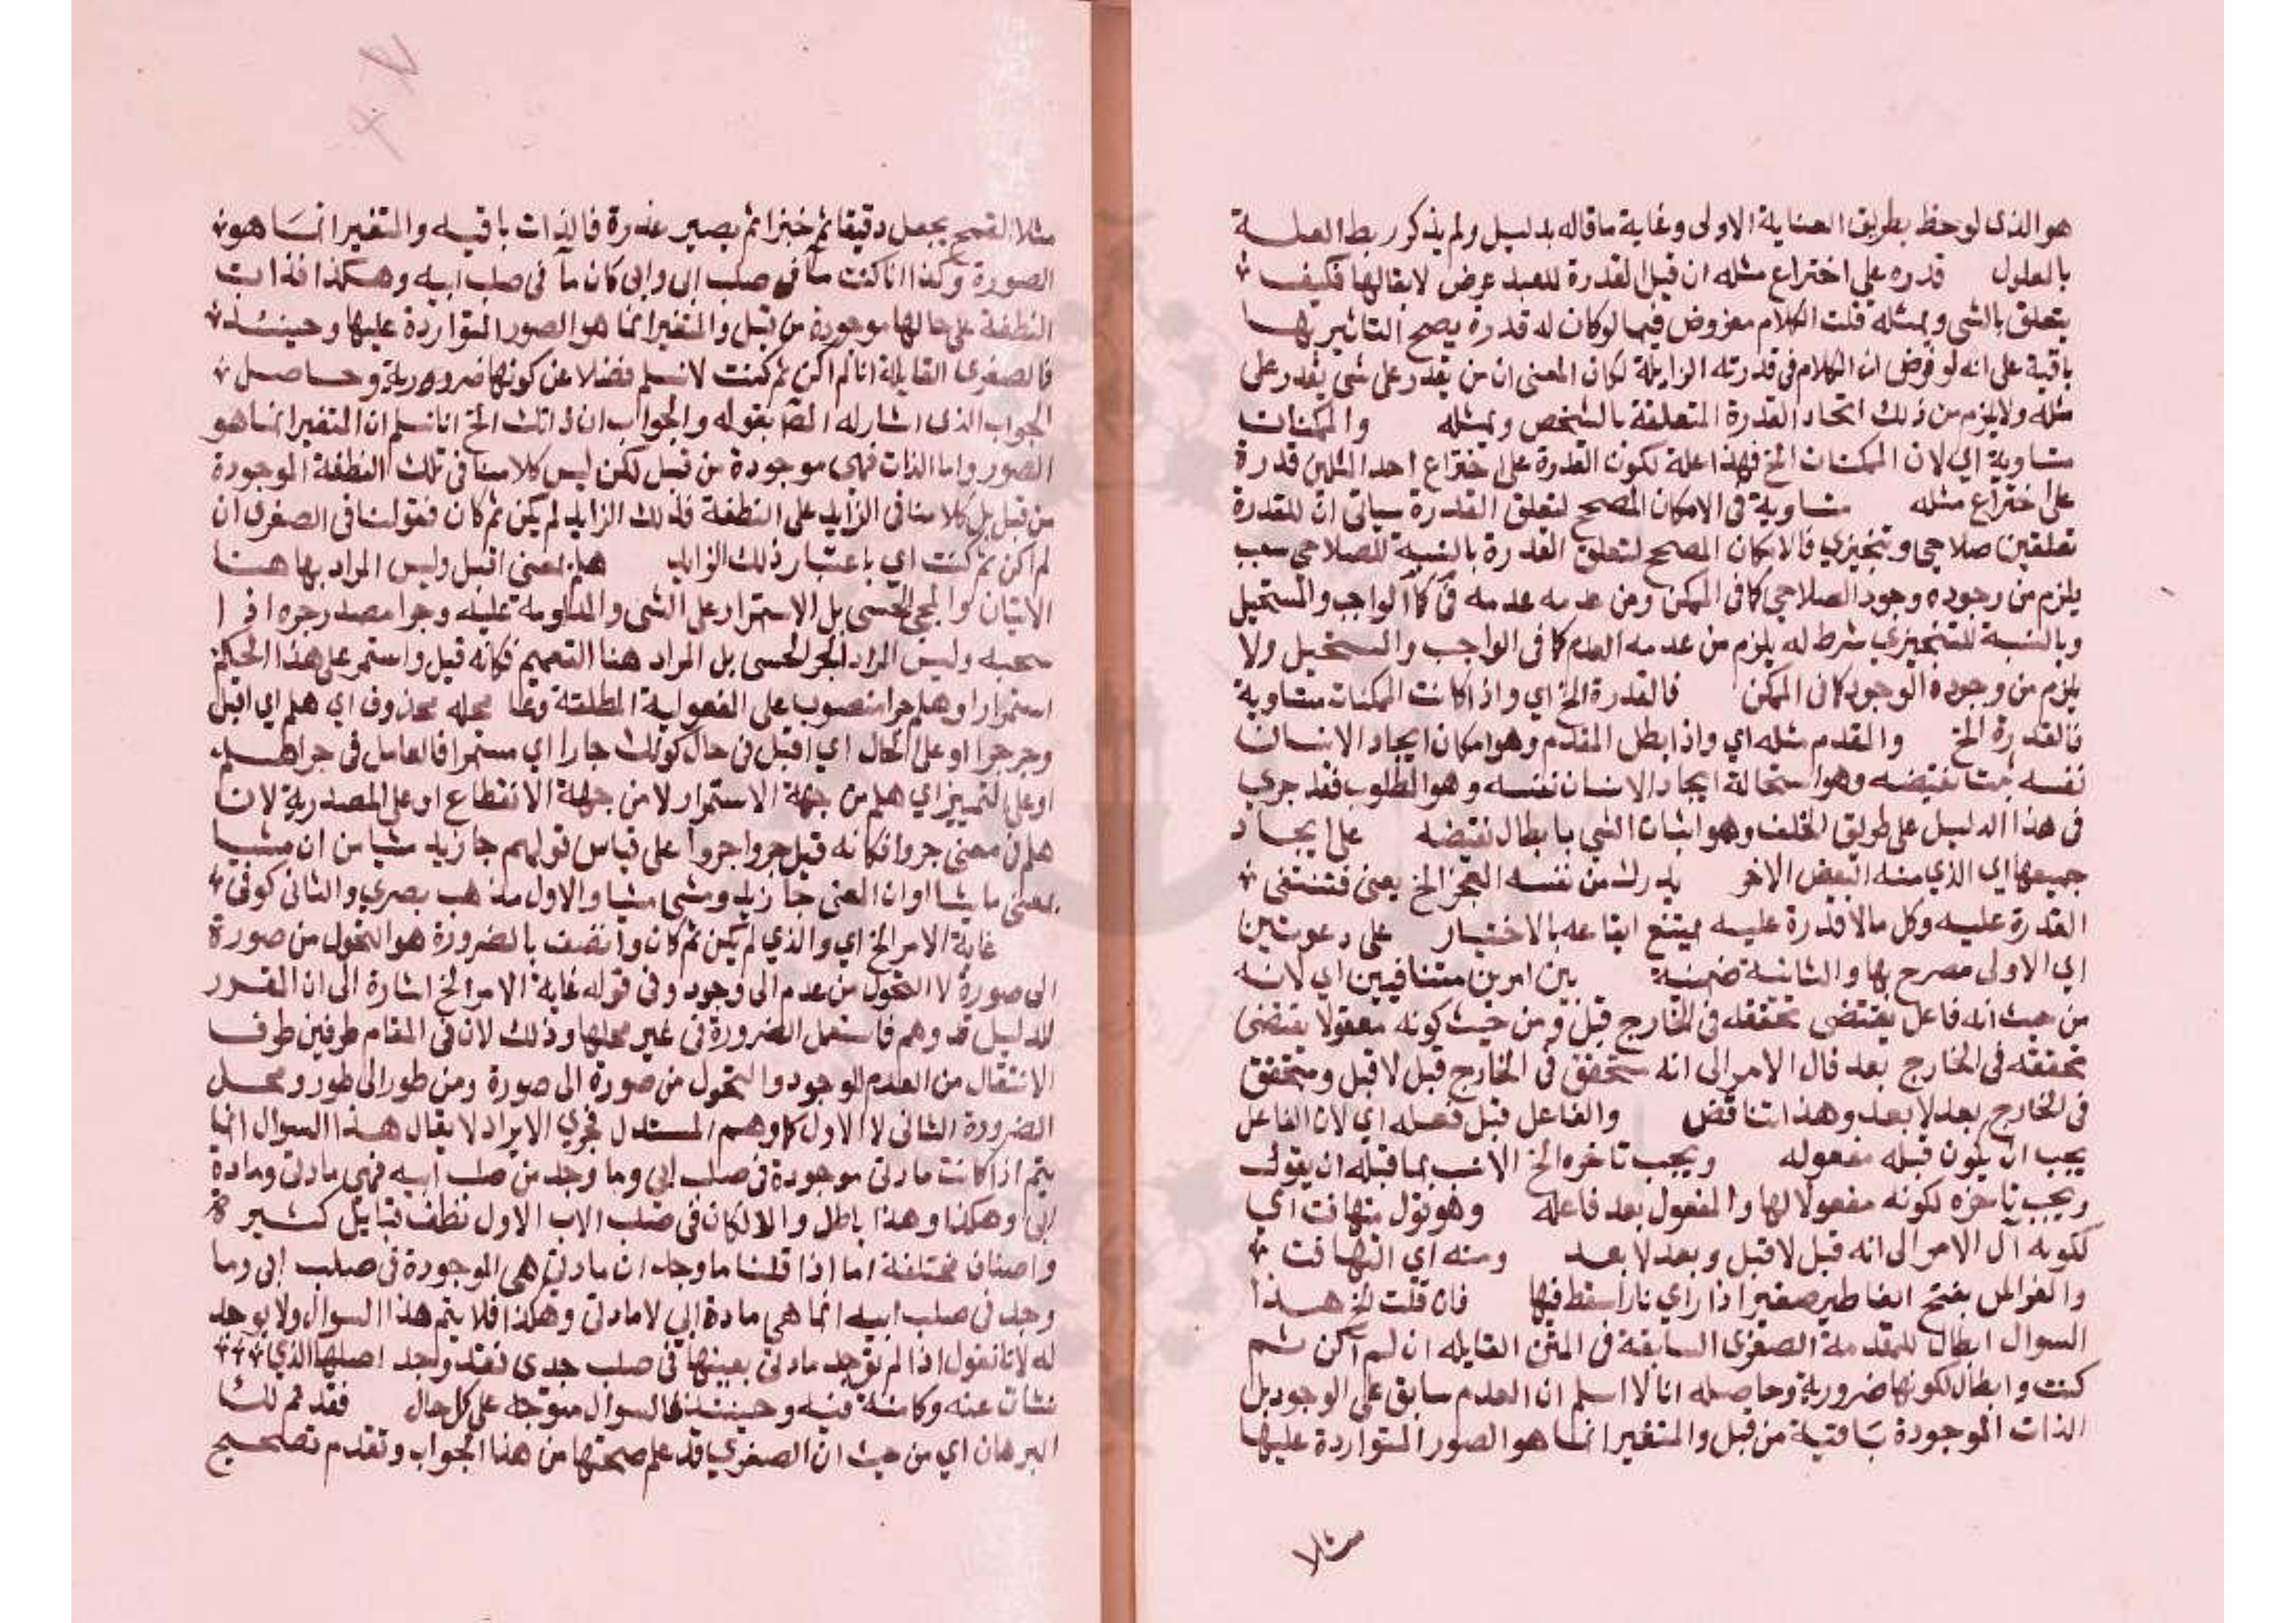 هو الذى لوحظ بطريق العناية الاولى وغاية ما قاله بدليل ولم يذكر ربط العلة
بالعلول قدره على اختراع مثله ان قيل القدرة للعبد عرض لا بقالها فكيف
يتعلق بالشى وبمثله قلت الكلام مفروض فيما لو كان له قدرة يصح التاثير بها
باقية على انه لو فرض ان الكلام فى قدرته الزايلة لكان المعنى ان من يقدر على شى يقدر على
مثله ولا يلزم من ذلك اتحاد القدرة المتعلقة بالشخص وبمثله والممكنات
متساوية اي لان الممكنات الخ فهذا علة لكون القدرة على اختراع احد المثلين قدرة
على اختراع مثله متساوية فى الامكان المصحح لتعلق القدرة سياتى ان للقدرة
تعلقين صلاحي وتنجيزي فالامكان المصحح لتعلق القدرة بالنسبة للصلاحي سبب
يلزم من وجوده وجود الصلاحي كما فى الممكن ومن عدمه عدمه كما فى الواجب والمستحيل
وبالنسبة للتنجيزي شرط له يلزم من عدمه العدم كما فى الواجب والمستحيل ولا
يلزم من وجوده الوجود كما فى الممكن فالقدرة الخ اي واذا كانت الممكنات متساوية
فالقدرة الخ والمقدم مثله اي واذا بطل المقدم وهو امكان ايجاد الانسان
نفسه ثبت نقيضه وهو استحالة ايجاد الانسان نفسه وهو المطلوب فقد جري
فى هذا الدليل على طريق الخلف وهو اثبات الشي بابطال نقيضه على ايجاد
جميعها اي الذي منه البعض الاخر يدرك من نفسه العجز الخ يعنى فتنتفى
القدرة عليه وكل ما لا قدرة عليه يمتنع ايقاعه بالاختيار على دعوتين
اي الاولى مصرح بها والثانية ضمنية بين امرين متنافيين اي لانه
من حيث انه فاعل يقتضى تحققه فى الخارج قبل ومن حيث كونه مفعولا يقتضى
تحققه فى الخارج بعد فال الامر الى انه متحقق فى الخارج قبل لا قبل ومتحقق
فى الخارج بعد لا بعد وهذا تناقض والفاعل قبل فعله اي لان الفاعل
يجب ان يكون قبله مفعوله ويجب تاخره الخ الانسب بما قبله ان يقول
ويجب تاخره لكونه مفعولا لها والمفعول بعد فاعله وهو قول متهافت اي
لكونه آل الامر الى انه قبل لا قبل وبعد لا بعد ومنه اي التهافت
والفراش بفتح الفا طير صغير اذا راي نارا سقط فيها فان قلت الخ هذا
السوال ابطال للمقدمة الصغرى السابقة فى المتن القايله ان لم اكن ثم
كنت وابطال لكونها ضرورية وحاصله انا لا اسلم ان العدم سابق على الوجود بل
الذات الموجودة باقية من قبل والمتغير انما هو الصور المتواردة عليها
مثلا
مثلا القمح يجعل دقيقا ثم خبزا ثم يصير عذرة فالذات باقيه والمتغير انما هو
الصورة وكذا انا كنت مآ فى صلب ابى وابى كان مآ فى صلب ابيه وهكذا فذات
النطفة على حالها موجودة من قبل والمتغير انما هو الصور المتواردة عليها وحينئذ
فالصغرى القايلة انا لم اكن ثم كنت لا نسلم فضلا عن كونها ضرورية وحاصل
الجواب الذى اشار له المصـ بقوله والجواب ان ذاتك الخ انا نسلم ان المتغير انما هو
الصور واما الذات فهى موجودة من قبل لكن ليس كلامنا فى تلك النطفة الموجودة
من قبل بل كلامنا فى الزايد على النطفة فذلك الزايد لم يكن ثم كان فقولنا فى الصغرى ان
لم اكن ثم كنت اي باعتبار ذلك الزايد هلم بمعنى اقبل وليس المراد بها هنا
الاتيان والمجي الحسى بل الاستمرار على الشى والمداومة عليه وجرا مصدر جره اذا
سحبه وليس المراد الجر الحسى بل المراد هنا التعميم فكانه قيل واستمر على هذا الحكم
استمرارا وهلم جرا منصوب على المفعولية المطلقة وعا مله محذوف اي هلم اي اقبل
وجر جرا او على الحال اي اقبل فى حال كونك جارا اي مستمرا فالعامل فى جرا هلم
او على التمييز اي هلم من جهة الاستمرار لا من جهة الانقطاع او على المصدرية لان
هلم فى معنى جروا فكانه قيل جروا جروا على قياس قولهم جا زيد مشيا من ان مشيا
بمعنى ماشيا او ان المعنى جا زيد ومشى مشيا والاول مذهب بصري والثانى كوفى
غاية الامر الخ اي والذي لم يكن ثم كان واتصف بالضرورة هو التحول من صورة
الى صورة لا التحول من عدم الى وجود وفى قوله غاية الامر الخ اشارة الى ان المقرر
للدليل قد وهم فاستعمل الضرورة فى غير محلها وذلك لان فى المقام طرفين طرف
الانتقال من العدم للوجود والتحول من صورة الى صورة ومن طور الى طور ومحل
الضرورة الثانى لا الاول كما وهم المستدل فجري الايراد لا يقال هذا السوال انما
يتم اذا كانت مادتى موجودة فى صلب ابي وما وجد من صلب ابيه فهى مادتى ومادة
ابى وهكذا وهذا باطل والا لكان فى صلب الاب الاول نطف قبايل كثيرة
واصناف مختلفة اما اذا قلنا ما وجد ان مادتى هى الموجودة فى صلب ابى وما
وجد فى صلب ابيه انما هى مادة ابي لا مادتى وهكذا فلا يتم هذا السوال ولا يوجد
له لانا نقول اذا لم توجد مادتى بعينها فى صلب جدى فقد وجد اصلها الذي
نشات عنه وكامنة فيه وحينئذ فالسوال متوجه على كل حال فقد تم لك
البرهان اي من حيث ان الصغري قد علم صحتها من هذا الجواب وتقدم تصحيح